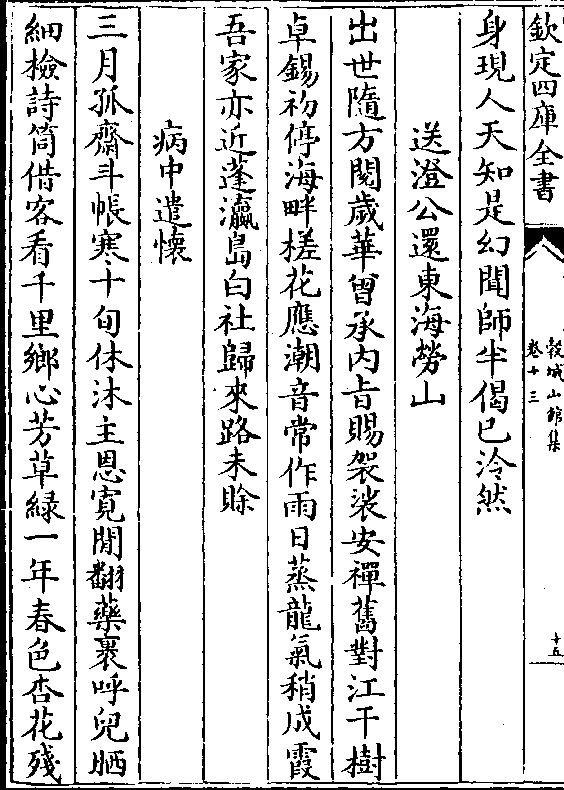 欽定四庫全書
穀城山館集
卷十三
十五
身現人天知是幻聞師半偈已泠然
送澄公還東海勞山
出世隨方閱歲華曾承内㫖賜袈裟安禪舊對江干樹
卓錫初停海畔槎花應潮音常作雨日蒸龍氣稍成霞
吾家亦近蓬瀛島白社歸來路未賒
病中遣懷
三月孤齋斗帳寒十旬休沐主恩寛閒翻藥裹呼兒晒
細檢詩筒借客看千里鄉心芳草緑一年春色杏花殘